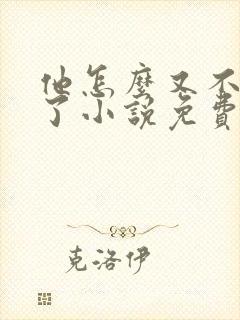 他怎麼又不
了小說免費
克洛伊